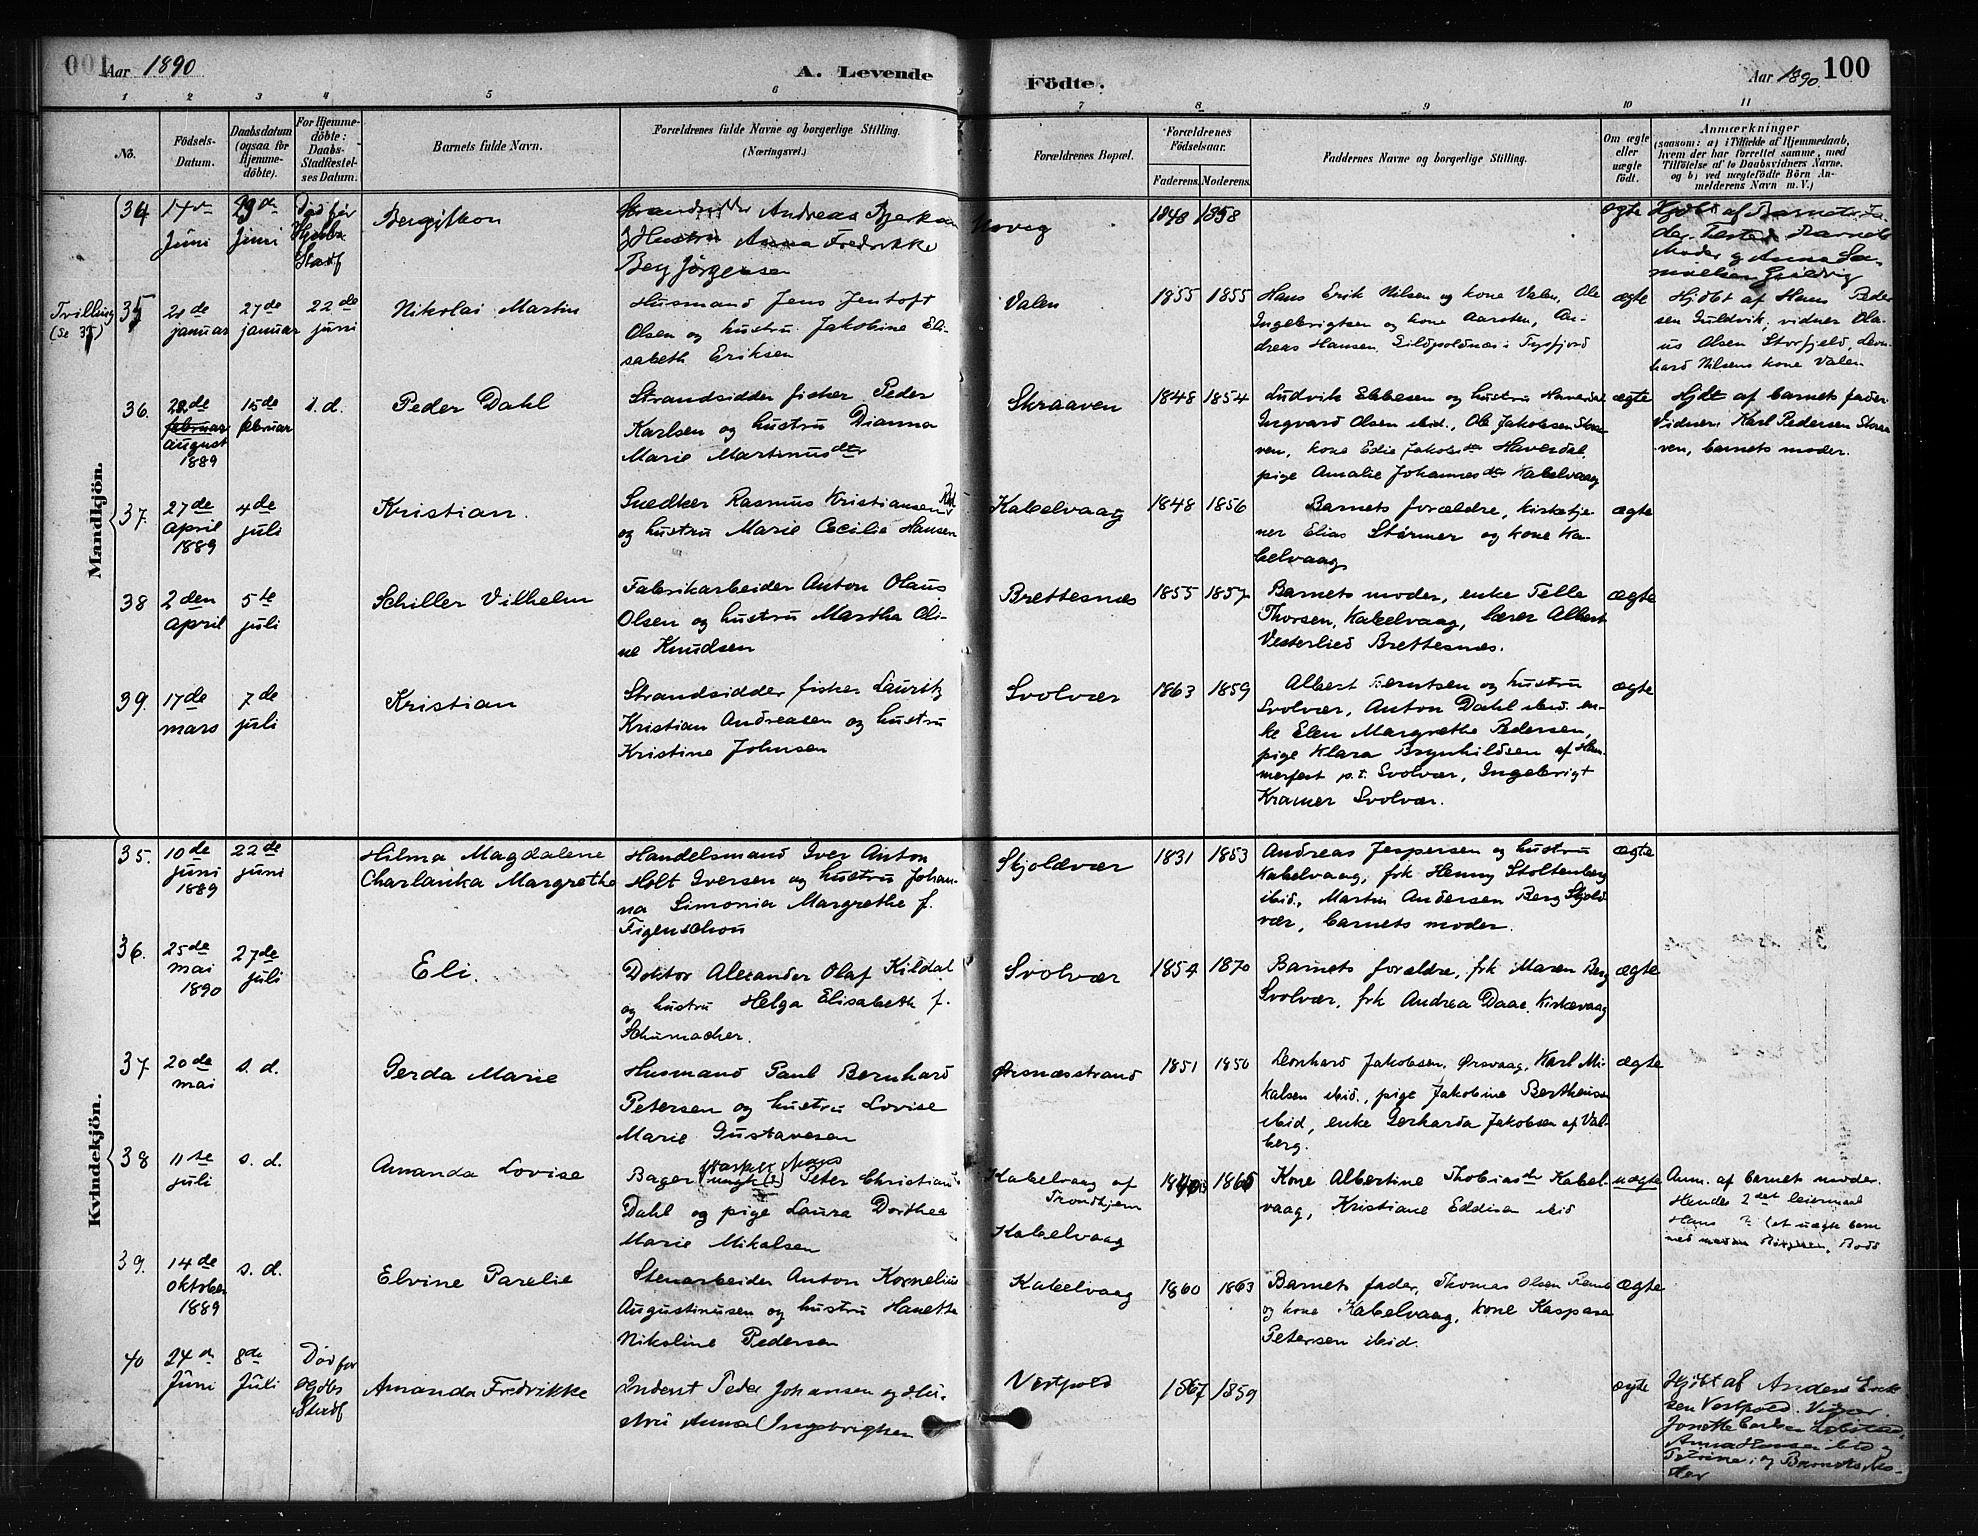 001 Aar 1890
A. Levende
Födte.
Aar 1890. 100
1 2 3 4 5 6 7 8 9 10 11
No.
Födsels-
Datum.
Daabsdatum
(ogsaa for
Hjemme-
döbte).
For Hjemme-
döbte:
Daabs-
Stadfæstel-
ses Datum.
Barnets fulde Navn.
Forældrenes fulde Navne og borgerlige Stilling.
(Næringsvei.)
Forældrenes Bopæl.
Forældrenes
Födselsaar.
Faderens. Moderens.
Faddernes Navne og borgerlige Stilling.
Om ægte
eller
uægte
født.
Anmærkninger
(saasom: a) i Tilfælde af Hjemmedaab,
hvem der har forrettet samme, med
Tilföielse af to Daabsvidners Navne,
og b) ved uægtefödte Börn An-
melderens Navn m. V.)
Mandkjön.
34
Juni
29de
Juni
Død før
Stadf
Andreas
Hustru Anna Fredrikke
Berg Jørgensen
1848 1858
ægte
Hjdbt af Barnets Fa-
der. Barnets
Moder og Anna Sa-
muelsen
Tvilling
(se 35)
35
januar
27de
januar
22de
juni
Nikolai Martin
Husmand Jens Jentoft
Olsen og hustru Jakobine Eli-
sabeth Eriksen
Valen
1855 1855
Hans Erik Nilsen og kone Valen, Ole
Ingebrigtsen og kone Aarsten, An-
dreas Hansen, i Tysfjord
ægte
Hjdbt af Hans Peder
sen Guldvik, vidner Ola-
us Olsen Storfjeld, Leon-
hard Nilsens kone Valen
36.
28de
februar
august
1889
15de
februar
s. d.
Peder Dahl
Strandsidder fisker Peder
Karlsen og hustru Dianna
Marie Martinusdtr
Skraaven
1848 1854
Ludvik Ebbesen og hustru Haversdal
Ingvard Olsen ibid., Ole Jakobsen Skraa-
ven, kone Edie Jakobsdtr Haversdal,
pige Amalie Johannesdtr Kabelvaag
ægte
Hjdt af barnets fader
Vidner: Karl Pedersen Skraa-
ven, barnets moder.
37.
27de
april
1889
4de
juli
Kristian.
Snedker Rasmus Kristiansen
og hustru Marie Cecilie Hansen
Kabelvaag
1848 1856
Barnets forældre, kirketje
ner Elias Størmer og kone Ka-
belvaag
ægte
38
2den
april
5te
juli
Schiller Vilhelm
Fabrikarbeider Anton Olaus
Olsen og hustru Martha Oli-
ne Knudsen
Brettesnæs
1855 1857
Barnets moder, enke Telle
Thorsen, Kabelvaag, lærer Albert
Vesterlied Brettesnæs.
ægte
39.
17de
mars
7de
juli
Kristian
Strandsidder fisker Lauritz
Kristian Andreasen og hustru
Kristine Johnsen
Svolvær
1863 1859
Albert Berntsen og hustru
Svolvær, Anton Dahl ibid. en-
ke Elen Margrethe Pedersen,
pige Klara Brynhildsen af Ham-
merfest p.t. Svolvær, Ingebrigt
Kramer Svolvær.
ægte
Kvindekjön.
35.
10de
juni
1889
22de
juni
Hilma Magdalene
Charlanka Margrethe
Handelsmand Iver Anton
Holt Iversen og hustru Johan-
na Simonia Margrethe f.
Figenschou
Skjoldvær
1831 1853
Andreas Jespersen og hustru
Kabelvaag, frk Henny Stoltenberg
ibid., Martin Andersen Berg Skjold
vær, barnets moder.
ægte
36.
25de
mai
1890
27de
juli
Eli.
Doktor Alexander Olaf Kildal
og hustru Helga Elisabeth f.
Schumacher.
Svolvær
1854 1870
Barnets forældre, frk Maren Berg
Svolvær, frk Andrea Daae, Kirkevaag
ægte
37.
20de
mai
s. d.
Gerda Marie
Husmand Paul Bernhard
Petersen og hustru Lovise
Marie Gustavesen
Ørsnæsstrand
1851 1850
Leonhard Jakobsen, Ørsvaag, Karl Mi-
kalsen ibid., pige Jakobine Bertheusen
ibid, enke Gerharda Jakobsen af Val-
berg.
ægte
38
11te
juli
s. d.
Amanda Lovise
Bager Peter Christian
Dahl og pige Laura Dorthea
Marie Mikalsen
Kabelvaag af
Trondhjem
Kabelvaag
1865
Kone Albertine Thobiasdtr Kabel-
vaag, Kristiane Eddisen ibid
uægte
Anm. af barnet moder.
Hendes 2det leiermaal
Hans
39.
14de
oktober
1889
s. d.
Elvine Parelie
Stenarbeider Anton Kornelius
Augustinusen og hustru Hanette
Nikoline Pedersen
Kabelvaag
1860 1863
Barnets fader, Thomas Olsen
og kone Kabelvaag, kone Kaspara
Petersen ibid.
ægte
40
24d
Juni
8de
Juli
Død før
Stadf
Amanda Fredrikke
Inderst Peder Johansen og Hu-
stru Anna Ingebrigtsen
Vestpold
1867 1859
ægte
Hjdbt af Anders Erik
sen Vestpold.
Anna Hansen ibid og
Petrine, og Barnets Mo-
der